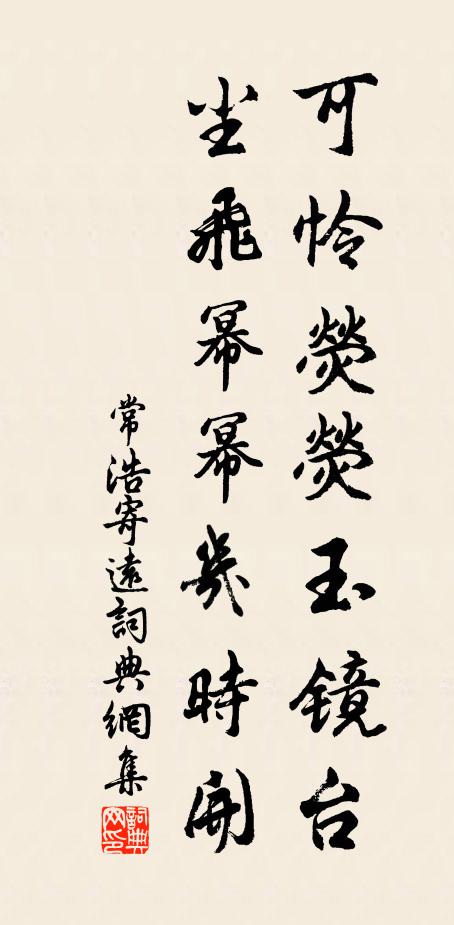 可怜熒熒玉镜台
尘飛幂幂幾時開
常浩寄遠詞典網集
詞典网印